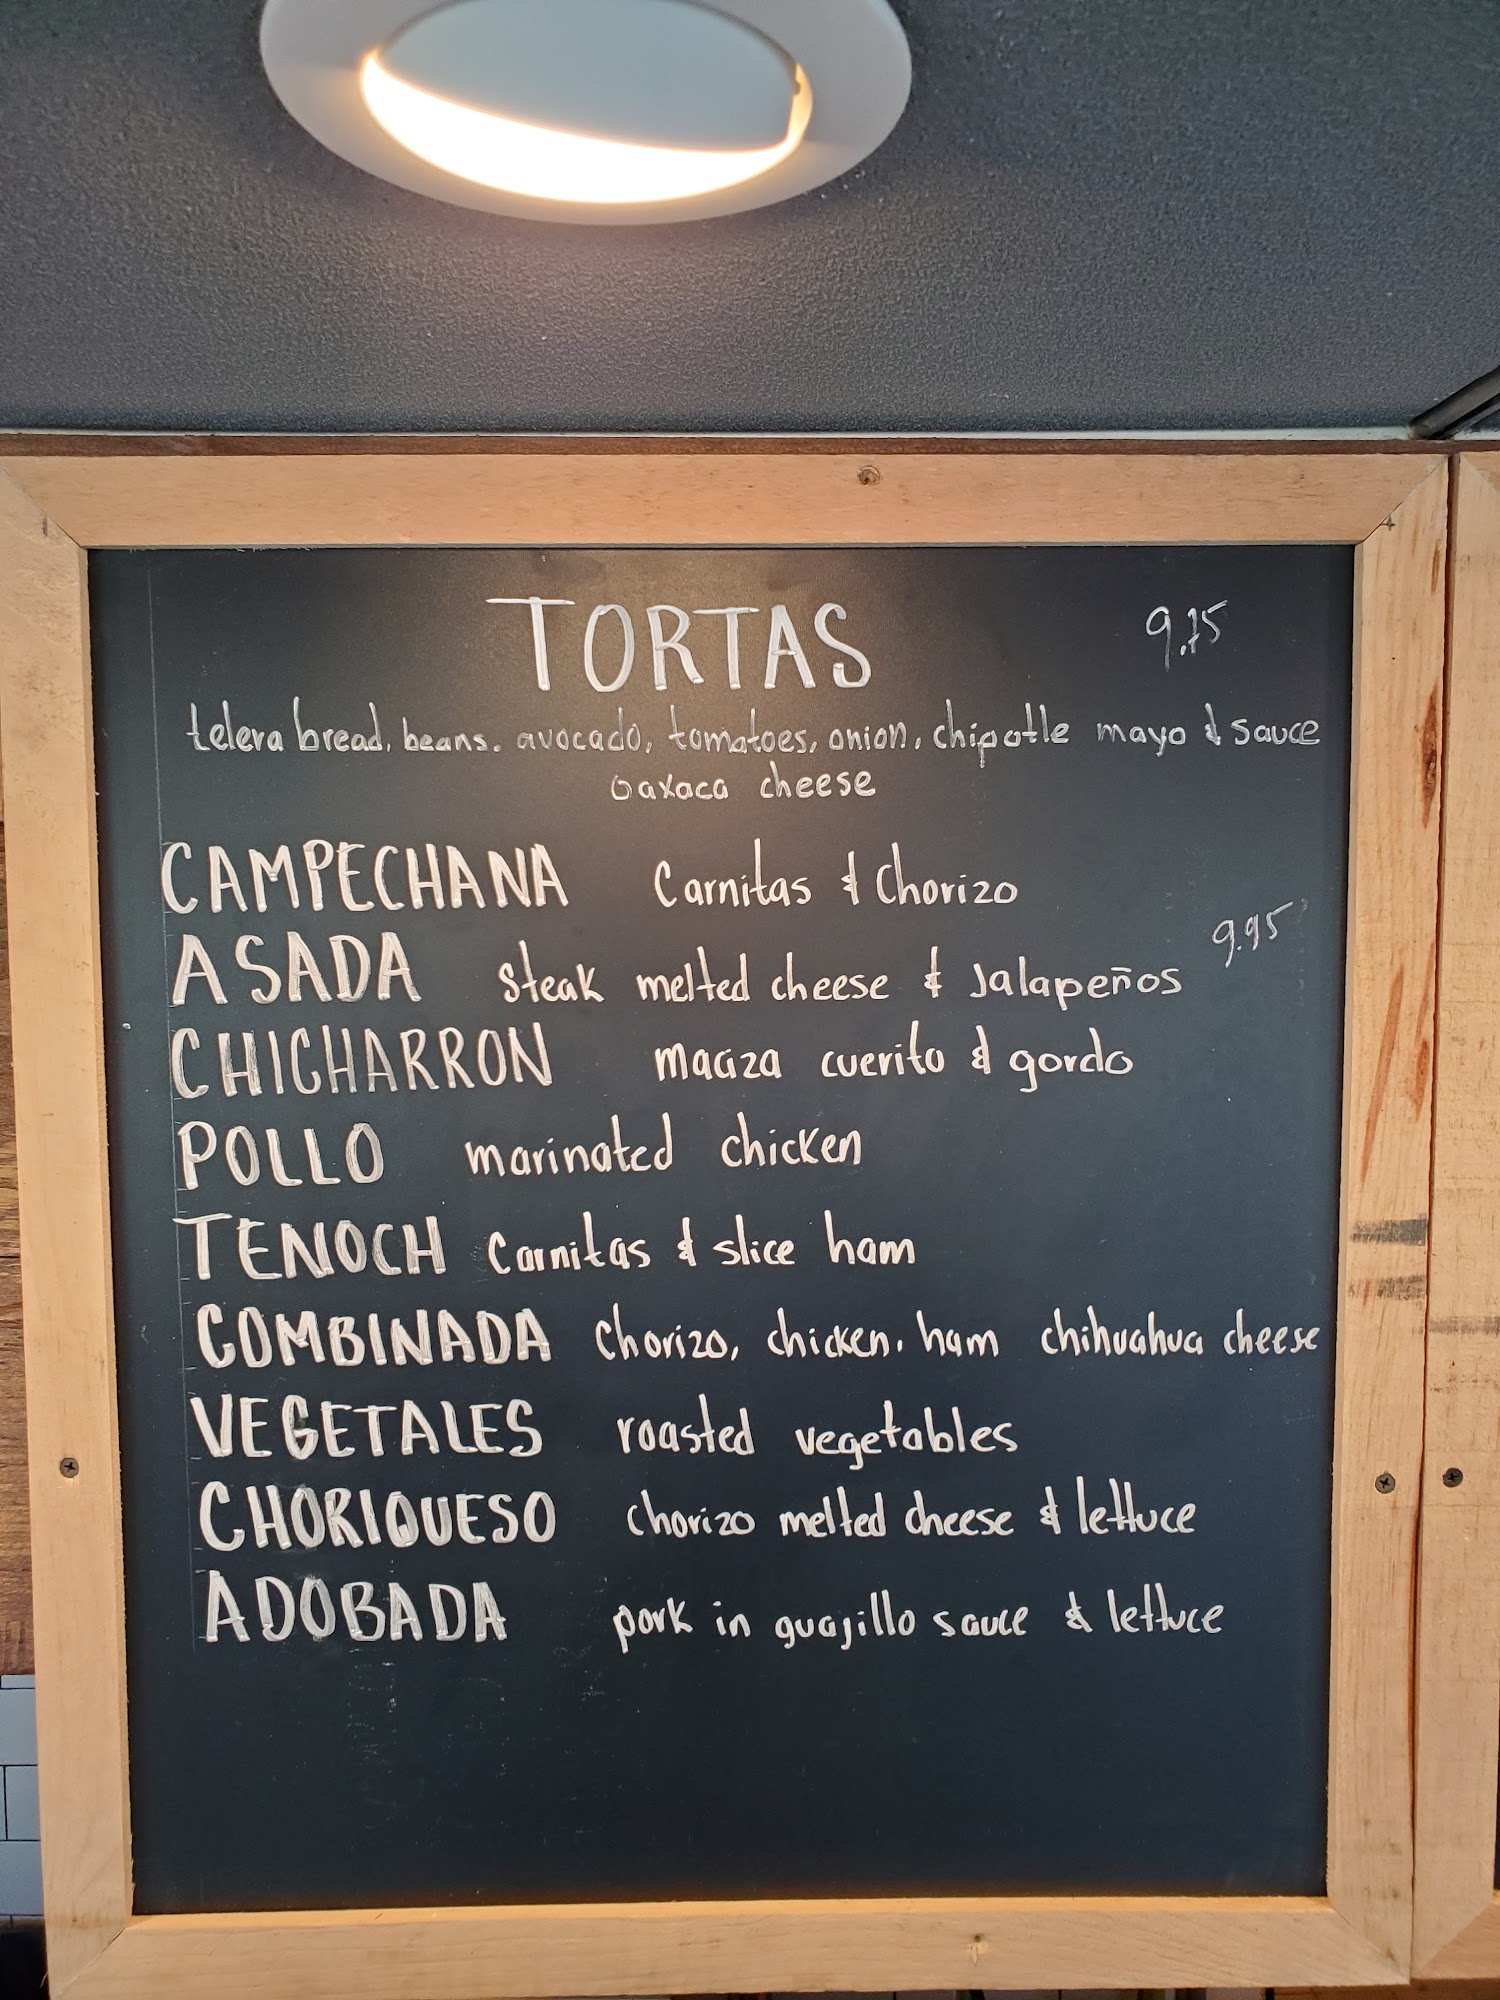 TORTAS 9.75
telera bread, beans. avocado, tomatoes, onion, chipotle mayo & sauce
Oaxaca cheese
CAMPECHANA Carnitas & Chorizo
ASADA steak melted cheese & Jalapeños 9.95
CHICHARRON maciza cuerito & gordo
POLLO marinated chicken
TENOCH Carnitas & slice ham
COMBINADA Chorizo, chicken, ham chihuahua cheese
VEGETALES roasted vegetables
CHORIQUESO chorizo melted cheese & lettuce
ADOBADA pork in guajillo sauce & lettuce